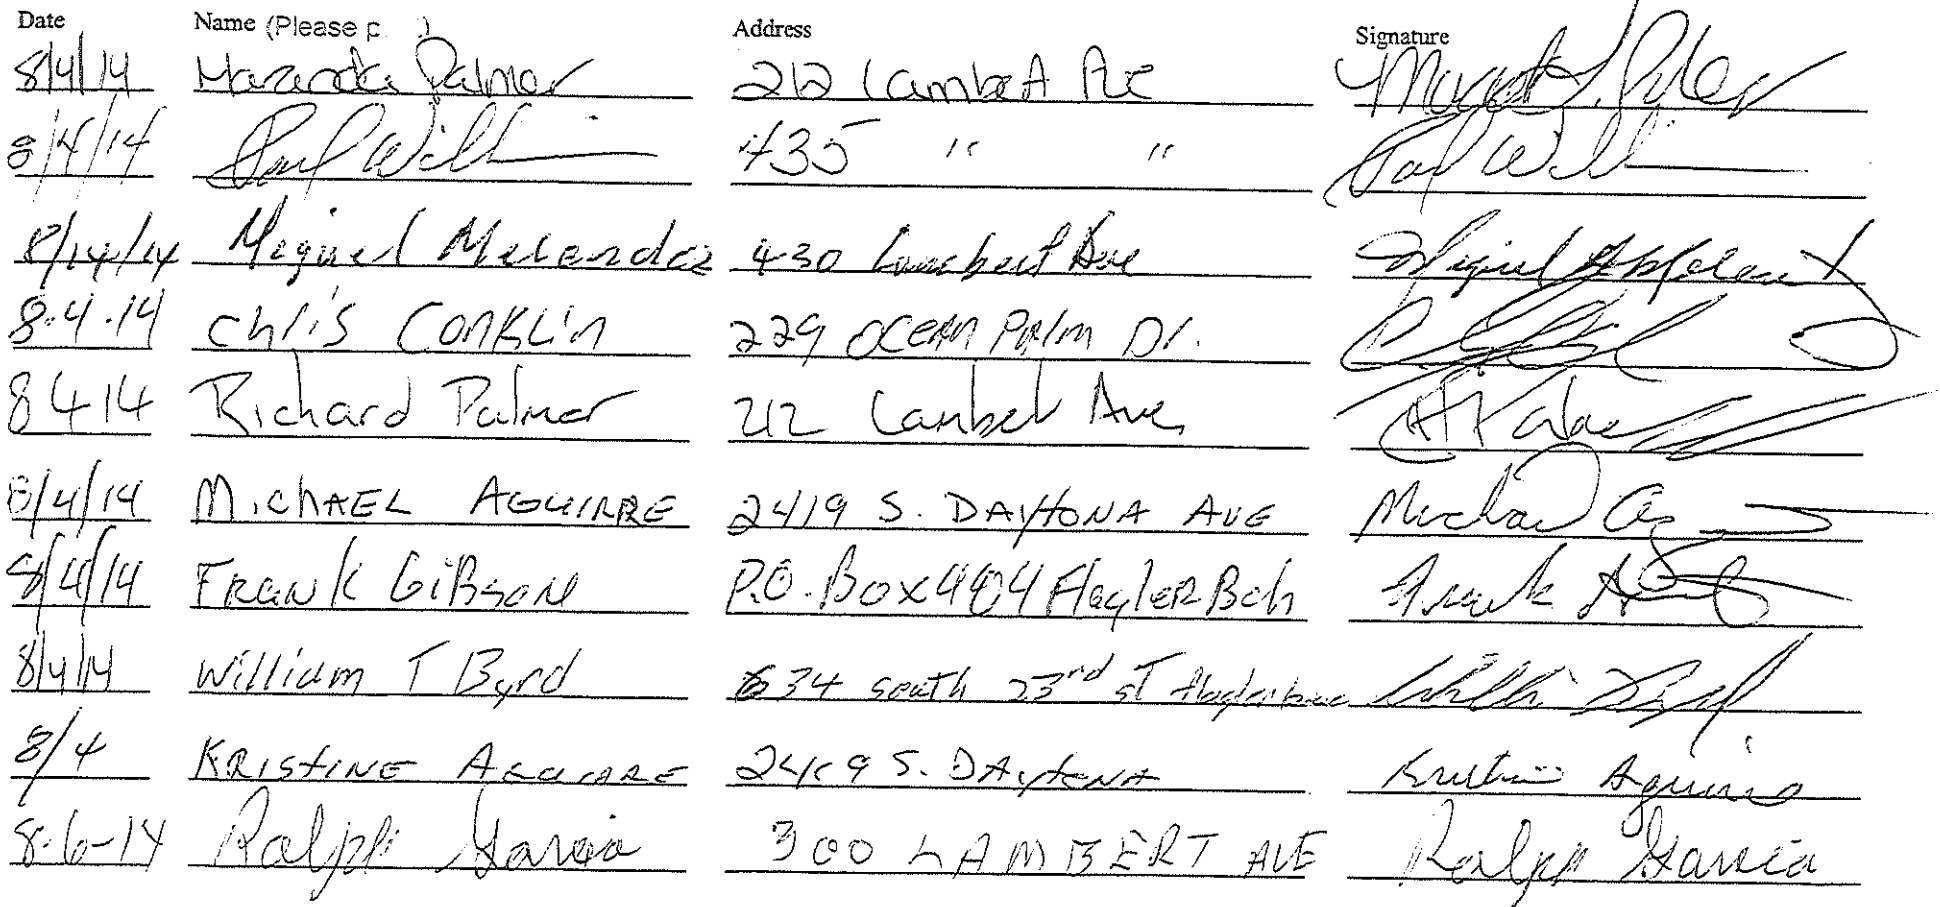 Date Name (Please p Address Signature
8/4/14 Palmer 212 Lambert Ave
8/4/14 Paul Will 435 " " Paul Will
8/14/14 Miguel Melendez 430 Lambert Ave Miguel
8-4-14 Chris Conklin 229 Ocean Palm Dr.
8 4 14 Richard Palmer 212 Lambert Ave
8/4/14 Michael Aguirre 2419 S. Daytona Ave Michael
8/4/14 Frank Gibson P.O. Box 404 Flagler Bch Frank
8/4/14 William T Byrd 634 south 23rd st
8/4 Kristine Aguirre 2419 S. Daytona Kristine Aguirre
8-6-14 Ralph Garcia 300 Lambert Ave Ralph Garcia